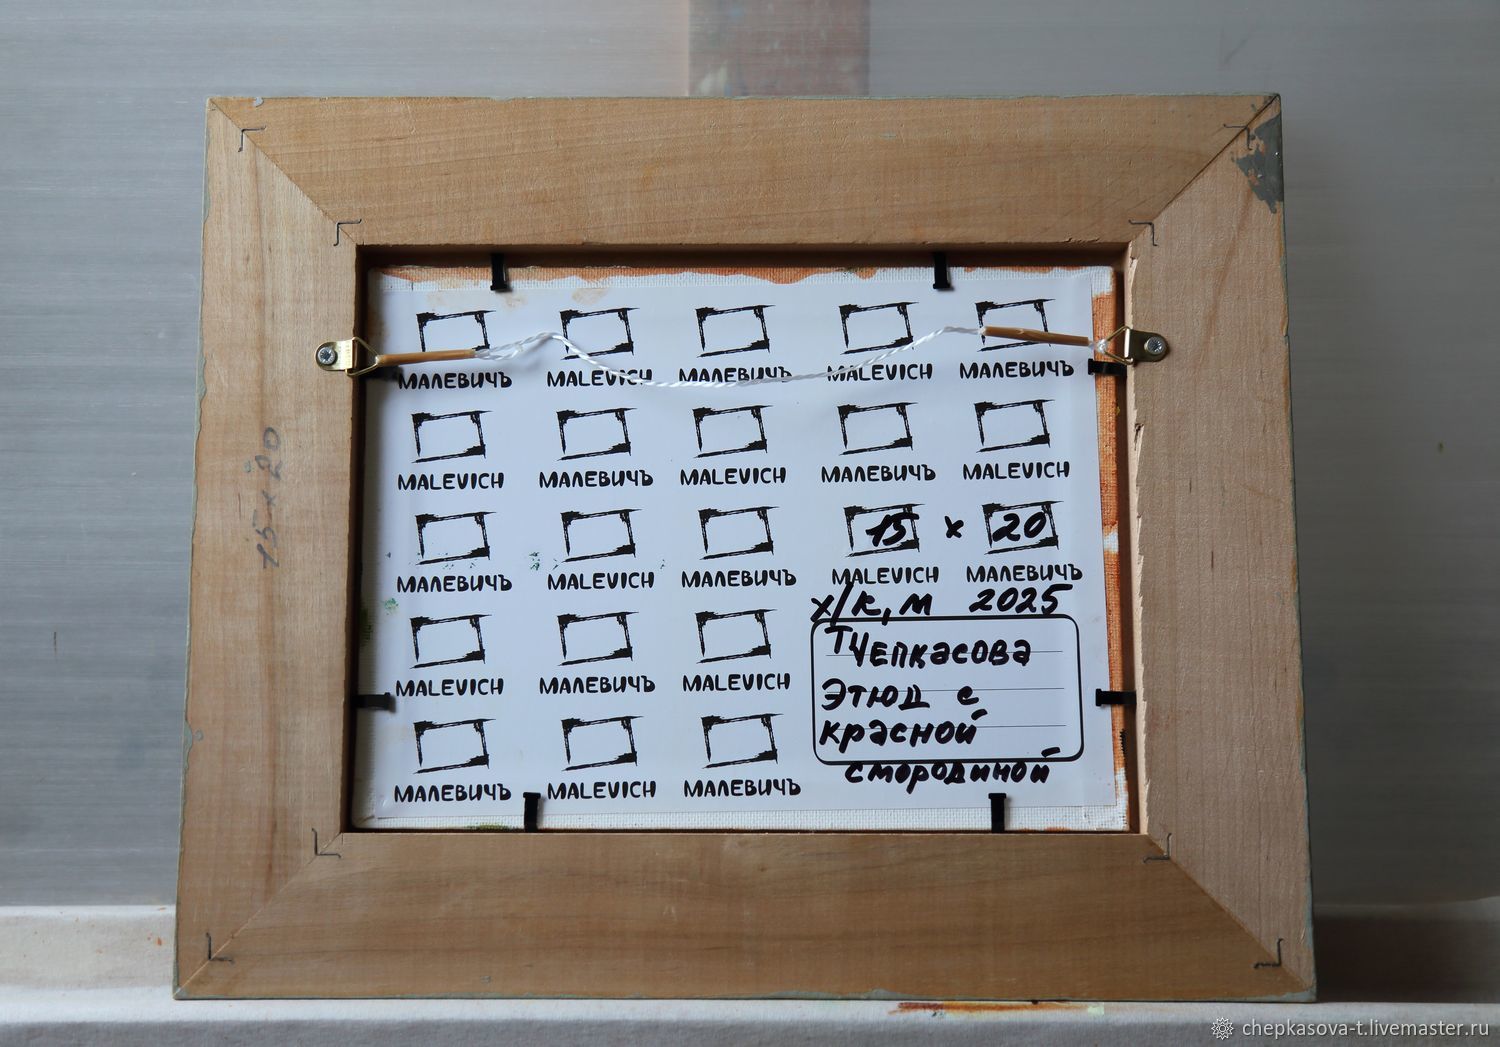 МАЛЕВИЧЪ MALEVICH МАЛЕВИЧЪ MALEVICH МАЛЕВИЧЪ
MALEVICH МАЛЕВИЧЪ MALEVICH МАЛЕВИЧЪ MALEVICH
15 x 20
МАЛЕВИЧЪ MALEVICH МАЛЕВИЧЪ MALEVICH МАЛЕВИЧЪ
х/к, м 2025
MALEVICH МАЛЕВИЧЪ MALEVICH
МАЛЕВИЧЪ MALEVICH МАЛЕВИЧЪ
Т Чепкасова
Этюд с
красной
смородиной
15 x 20
chepkasova-t.livemaster.ru